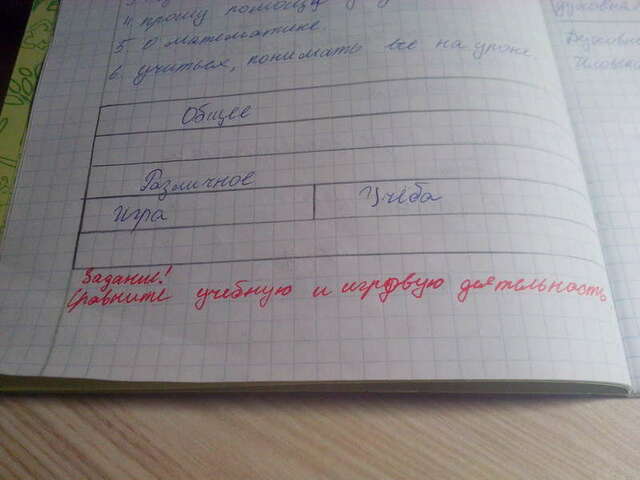 4. прошу помощи у
5. О математике.
6. учиться, понимать все на уроке.
Общее
Различное
Игра Учёба
Задание!
Сравните учебную и игровую деятельность.